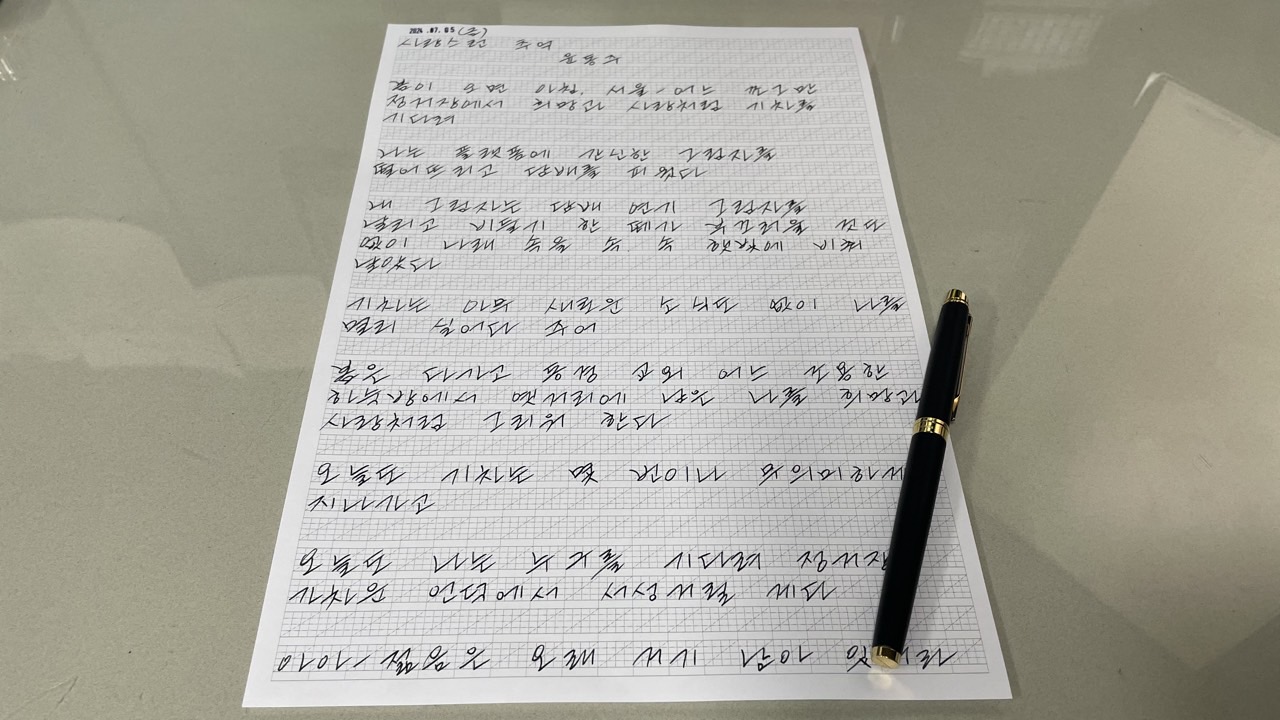 2024.07.05(금)
사랑스런 추억
윤동주
봄이 오면 아침, 서울 - 어느 쪼그만
정거장에서 희망과 사랑처럼 기차를
기다려
나는 플랫폼에 간신한 그림자를
떨어뜨리고 담배를 피웠다
내 그림자는 담배 연기 그림자를
날리고 비둘기 한 떼가 부끄러울 것도
없이 나래 속을 속 속 햇빛에 비춰
날았다
기차는 아무 새로운 소식도 없이 나를
멀리 실어다 주어
봄은 다 가고 동경 교외 어느 조용한
하숙방에서 옛거리에 남은 나를 희망과
사랑처럼 그리워 한다
오늘도 기차는 몇 번이나 무의미하게
지나가고
오늘도 나는 누구를 기다려 정거장
가차운 언덕에서 서성거릴 게다
아아 - 젊음은 오래 거기 남아